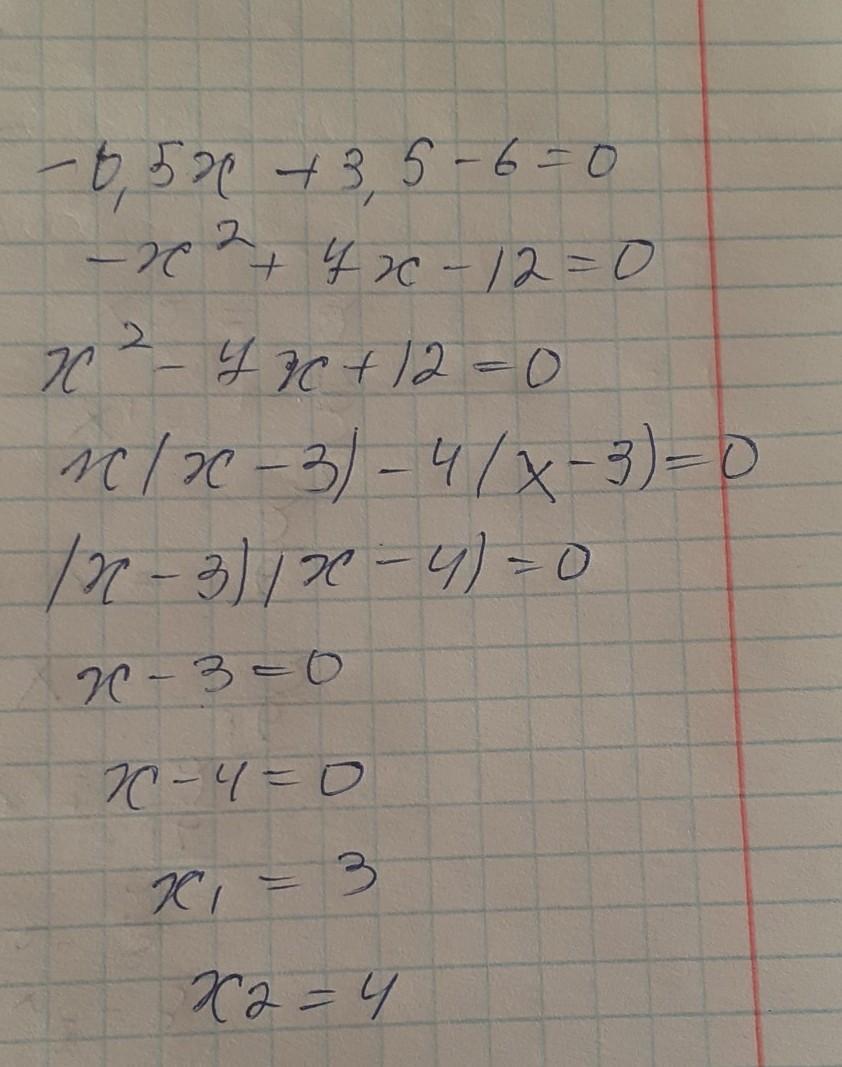 -0,5x + 3,5 - 6 = 0
-x² + 7x - 12 = 0
x² - 7x + 12 = 0
x(x - 3) - 4(x - 3) = 0
(x - 3)(x - 4) = 0
x - 3 = 0
x - 4 = 0
x₁ = 3
x2 = 4